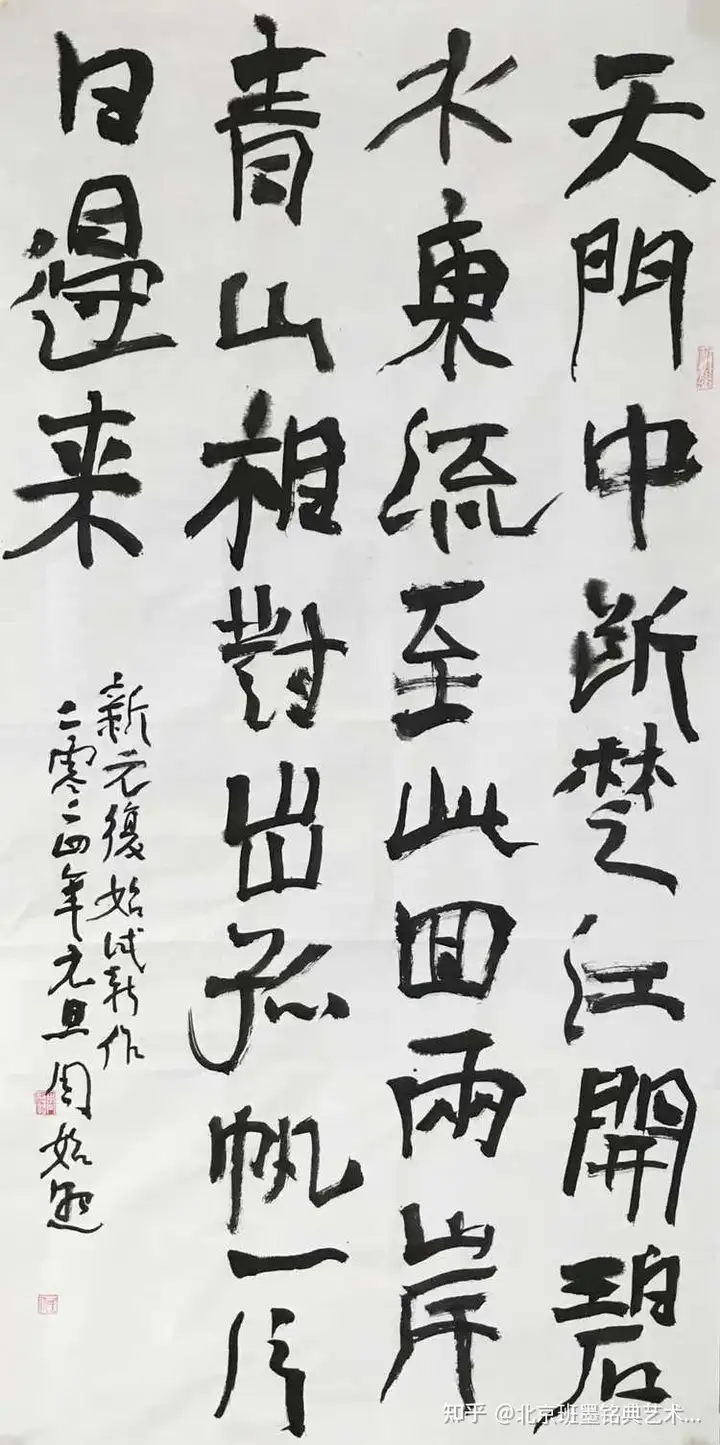 天門中断楚江開碧
水東流至此回兩岸
青山相對出孤帆一片
日邊来
新元復始試新作
二零二四年元旦周
知乎 @北京班墨铭典艺术...